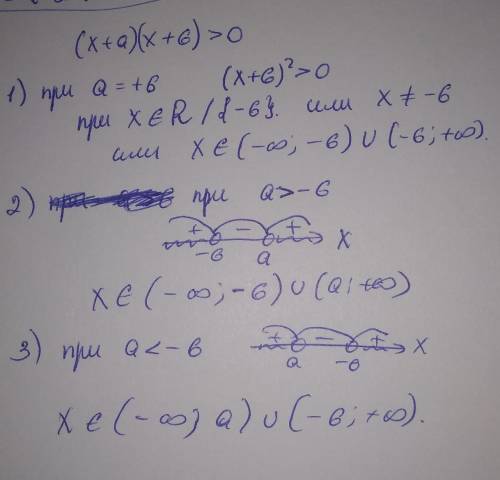 (x+a)(x+6)>0
1) при a=+6 (x+6)²>0
при x∈R/{-6}. или x≠-6
или x∈(-∞;-6)∪(-6;+∞).
2) при a>-6
+ - +
-6 a x
x∈(-∞;-6)∪(a;+∞)
3) при a<-6
+ - +
a -6 x
x∈(-∞; a)∪(-6;+∞).